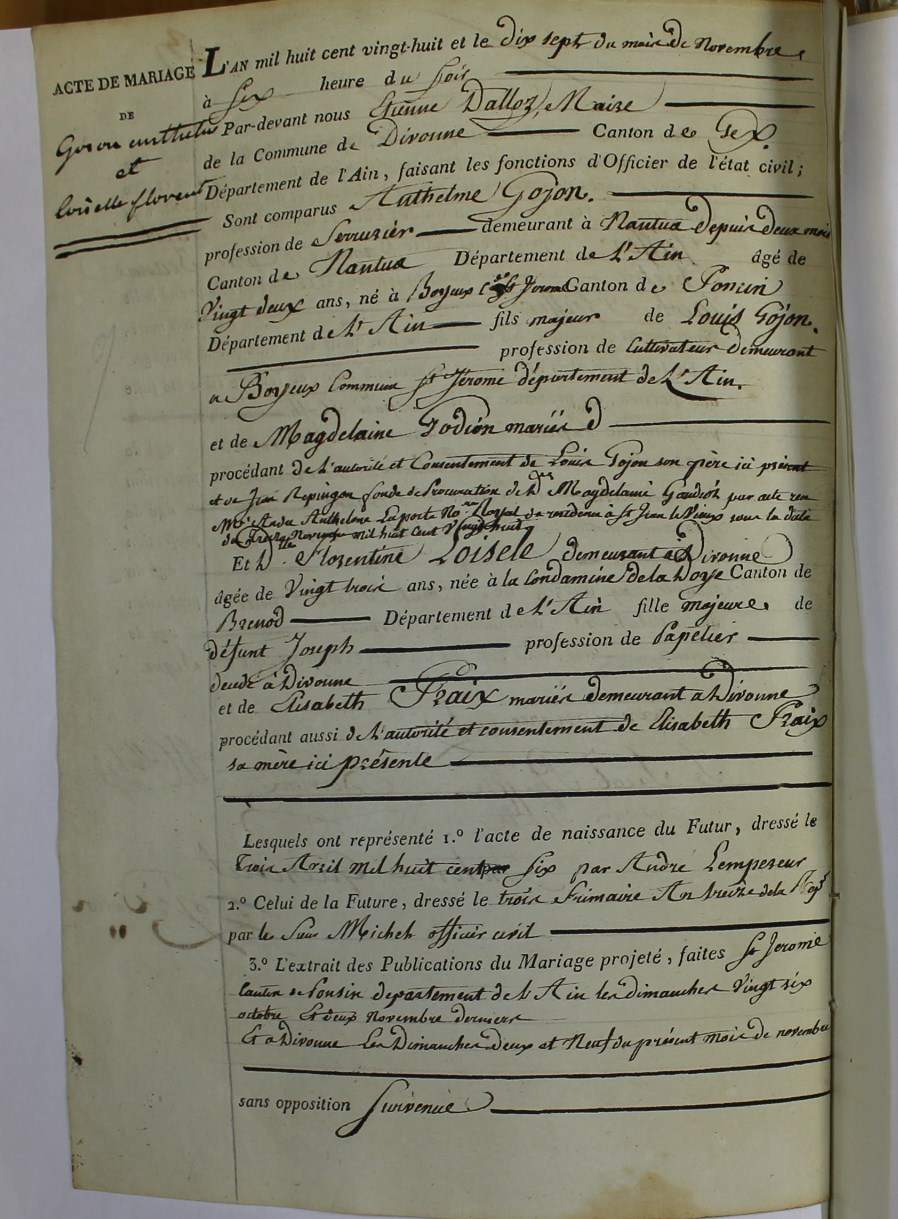 ACTE DE MARIAGE
DE
Gojon Anthelme
et
Loiselle florent
L'AN mil huit cent vingt-huit et le dix sept du mois de Novembre
à Six heure du Soir
Par-devant nous Etienne Dalloz, Maire
de la Commune de Divonne Canton de Gex.
Département de l'Ain, faisant les fonctions d'Officier de l'état civil;
Sont comparus Anthelme Gojon.
profession de Serrurier demeurant à Nantua depuis deux mois
Canton de Nantua Département de L'Ain âgé de
Vingt deux ans, né à Boyeux St Jerome Canton de Poncin
Département de L'Ain fils majeur de Louis Gojon.
profession de Cultivateur demeurant
a Boyeux Commune St Jérome département de L'Ain.
et de Magdelaine Godion mariés
procédant de L'autorité et Consentement de Louis Gojon son père ici présent
et de Jean Repingon fondé de Procuration de de Magdelaine Gaudion par acte
Me André Anthelme Laporte Nore Royal de residence à St Jean le Vieux sous la date
du Novembre mil huit cent Vingt huit
Et Dlle Florentine Loisele demeurant a Divonne
âgée de Vingt trois ans, née à la Condamine de la Doye Canton de
Brenod Département de L'Ain fille majeure de
défunt Joseph profession de Papetier
décédé à Divonne
et de Elisabeth Fraix mariés demeurant a Divonne
procédant aussi de L'autorité et consentement de Elisabeth Fraix
sa mère ici présente
Lesquels ont représenté 1.º l'acte de naissance du Futur, dressé le
Trois Avril mil huit cent six par André Lempereur
2.º Celui de la Future, dressé le trois Frimaire An treize de la Rép
par le Sieur Michel officier civil
3.º L'extrait des Publications du Mariage projeté, faites St Jerome
Canton de Ponsin departement de L'Ain les dimanches Vingt six
octobre Et deux Novembre derniers
Et a Divonne Les Dimanches deux et Neuf du présent mois de novembre
sans opposition Survenue